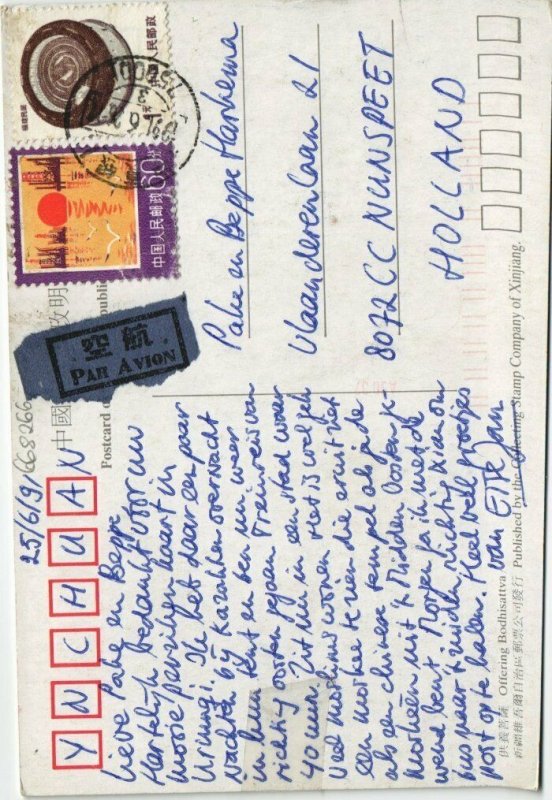 YINCHUAN
25/6/91
668266
Lieve Pake en Beppe
Hartelijk bedankt voor uw
mooie kaart in
Urümqi. Ik heb daar een paar
nachten bij Kazakhen overnacht
in een en ben nu weer
richting oosten gegaan. Treinreis van
40 uur. Zit nu in een stad waar
veel moslims wonen. Het is wel gek
een moskee te zien die eruit ziet
als een chinese tempel als je de
moskeeën uit 't Midden Oosten ge-
wend bent. Morgen ga ik met de
bus naar 't zuiden, richting Xian om
post op te halen. Heel veel groetjes
van Eise Jan
Pake en Beppe Harkema
Vlaanderenlaan 21
8072 CC NUNSPEET
HOLLAND
中国人民邮政
福建民居
60分
中国人民邮政
航空
PAR AVION
中國
明
Postcard
供養菩薩 Offering Bodhisattva
新疆維吾爾自治區郵票公司發行 Published by the Collecting Stamp Company of Xinjiang.